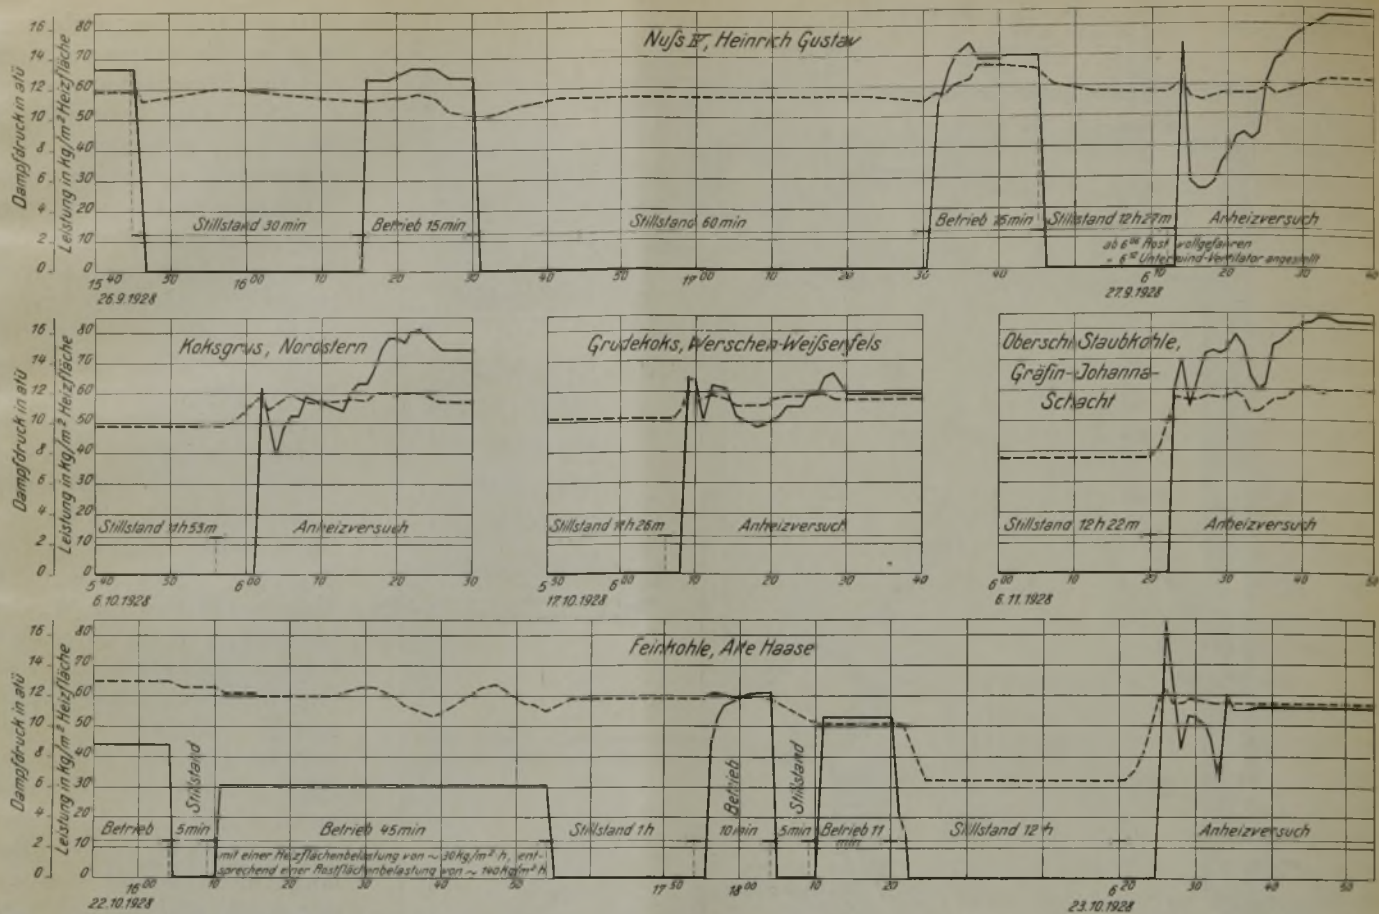 Nuſs IV, Heinrich Gustav
Dampfdruck in atü
Leistung in kg/m² Heizfläche
16 14 12 10 8 6 4 2 0
80 70 60 50 40 30 20 10 0
Stillstand 30 min
Betrieb 15 min
Stillstand 60 min
Betrieb 15 min
Stillstand 12 h 27 m
Anheizversuch
ab 6 Rost vollgefahren
" 6 Unterwind-Ventilator angestellt
15 40 50 16 00 10 20 30 40 50 17 00 10 20 30 40 50 6 10 20 30 40
26.9.1928
27.9.1928
Koksgrus, Nordstern
Dampfdruck in atü
Leistung in kg/m² Heizfläche
16 14 12 10 8 6 4 2 0
80 70 60 50 40 30 20 10 0
Stillstand 11 h 53 m
Anheizversuch
5 40 50 6 00 10 20 30
6.10.1928
Grudekoks, Werschen-Weiſsenfels
Stillstand 11 h 26 m
Anheizversuch
5 50 6 00 10 20 30 40
17.10.1928
Oberschl. Staubkohle,
Gräfin-Johanna-
Schacht
Stillstand 12 h 22 m
Anheizversuch
6 00 10 20 30 40 50
6.11.1928
Feinkohle, Alte Haase
Dampfdruck in atü
Leistung in kg/m² Heizfläche
16 14 12 10 8 6 4 2 0
80 70 60 50 40 30 20 10 0
Betrieb
Stillstand
5 min
Betrieb 45 min
mit einer Heizflächenbelastung von ~ 30 kg/m²·h, ent-
sprechend einer Rostflächenbelastung von ~ 140 kg/m²·h
Stillstand 1 h
Betrieb
10 min
Stillstand
5 min
Betrieb 11
min
Stillstand 12 h
Anheizversuch
16 00 10 20 30 40 50 17 50 18 00 10 20 6 20 30 40 50
22.10.1928
23.10.1928